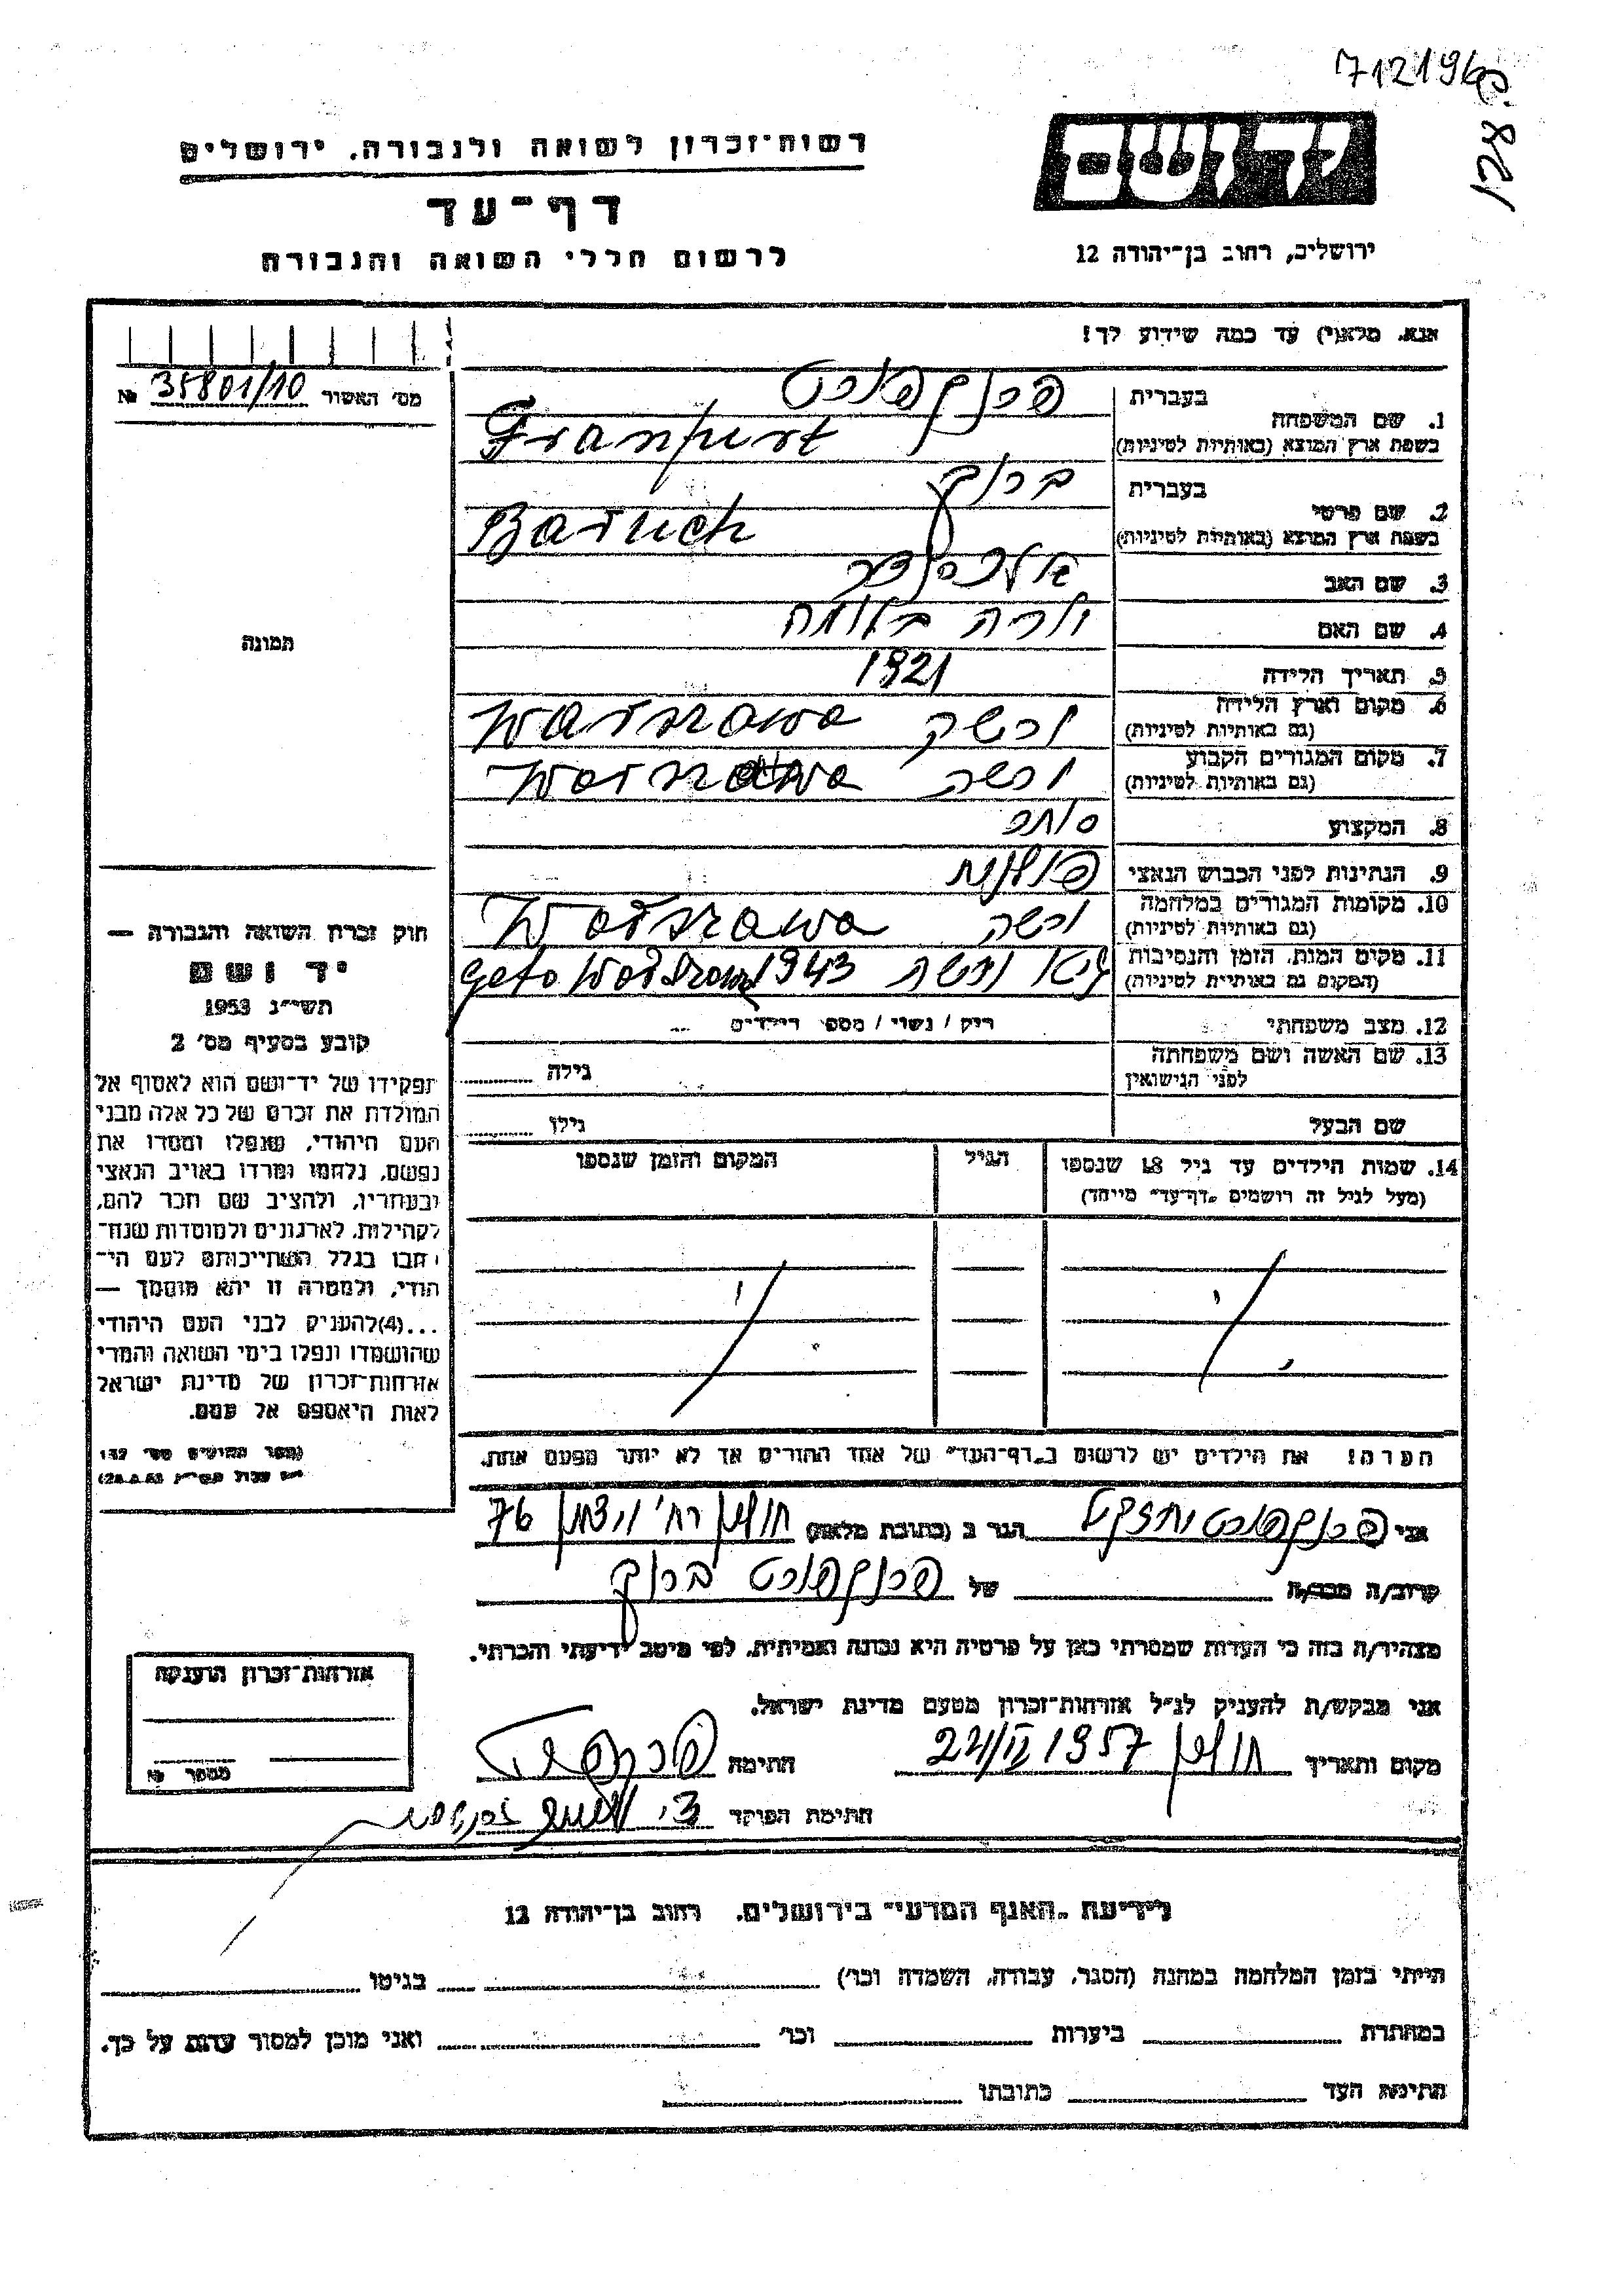 7121196
רשות־זכרון לשואה ולגבורה, ירושלים
דף־עד
לרשום חללי השואה והגבורה
יד ושם
ירושלים, רחוב בן־יהודה 12
אנא, מלא(י) עד כמה שידוע לך!
מס' האשור 35801/10 №
1. שם המשפחה
בעברית פרנקפורט
בשפת ארץ המוצא (באותיות לטיניות) Franpurt
2. שם פרטי
בעברית ברוך
בשפת ארץ המוצא (באותיות לטיניות) Baruch
3. שם האב
4. שם האם
5. תאריך הלידה 1921
6. מקום וארץ הלידה
(גם באותיות לטיניות) ורשה Warszawa
7. מקום המגורים הקבוע
(גם באותיות לטיניות) ורשה Warszawa
8. המקצוע סוחר
9. הנתינות לפני הכבוש הנאצי פולנית
10. מקומות המגורים במלחמה
(גם באותיות לטיניות) ורשה Warszawa
11. מקום המות, הזמן והנסיבות
(המקום גם באותיות לטיניות) גיטו ורשה 1943 Geto Warszawa
12. מצב משפחתי רוק / נשוי / מספר הילדים
13. שם האשה ושם משפחתה
לפני הנישואין גילה
שם הבעל גילו
14. שמות הילדים עד גיל 18 שנספו
(מעל לגיל זה רושמים "דף־עד" מיוחד)
הגיל
המקום והזמן שנספו
הערה! את הילדים יש לרשום ב"דף־העד" של אחד ההורים אך לא יותר מפעם אחת.
תמונה
חוק זכרון השואה והגבורה —
יד ושם
תשי"ג 1953
קובע בסעיף מס' 2
תפקידו של יד־ושם הוא לאסוף אל
המולדת את זכרם של כל אלה מבני
העם היהודי, שנפלו ומסרו את
נפשם, נלחמו ומרדו באויב הנאצי
ובעוזריו, ולהציב שם וזכר להם,
לקהילות, לארגונים ולמוסדות שנח־
רבו בגלל השתייכותם לעם הי־
הודי, ולמטרה זו יהא מוסמך —
...(4)להעניק לבני העם היהודי
שהושמדו ונפלו בימי השואה והמרי
אזרחות־זכרון של מדינת ישראל
לאות היאספם אל עמם.
(ספר החוקים מס' 132
אני פרנקפורט יחזקאל הגר ב (כתובת מלאה) חולון רח' ויצמן 76
קרוב/ה מכר/ה של פרנקפורט ברוך
מצהיר/ה בזה כי העדות שמסרתי כאן על פרטיה היא נכונה ואמיתית, לפי מיטב ידיעתי והכרתי.
אני מבקש/ת להעניק לנ"ל אזרחות־זכרון מטעם מדינת ישראל.
מקום ותאריך חולון 22/IV 1957 חתימה
חתימת הפוקד
אזרחות־זכרון הוענקה
מספר №
לידיעת "האגף המדעי" בירושלים, רחוב בן־יהודה 12
הייתי בזמן המלחמה במחנה (הסגר, עבודה, השמדה וכו') בגיטו
במחתרת ביערות וכו' ואני מוכן למסור עדות על כך.
חתימת העד כתובתו